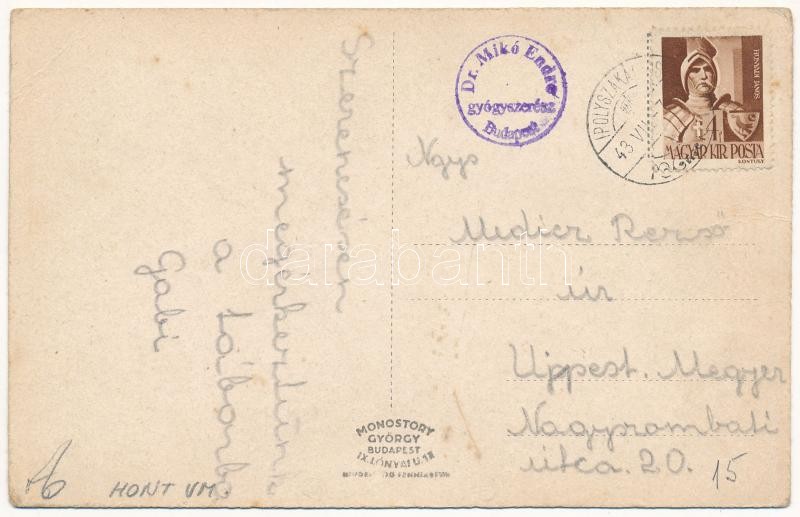 Szerencsésen
megérkeztünk
a táborba
Gabi
Dr. Mikó Endre
gyógyszerész
Budapest
HUNYADI JÁNOS
4 f
MAGYAR KIR. POSTA
KONTULY
IPOLYSZAKÁ
43 VII
Ngys
Medicz Rezső
úr
Ujpest. Megyer
Nagyszombati
utca. 20.
MONOSTORY
GYÖRGY
BUDAPEST
IX. LÓNYAI U. 18
HONT VM.
15
darabanth